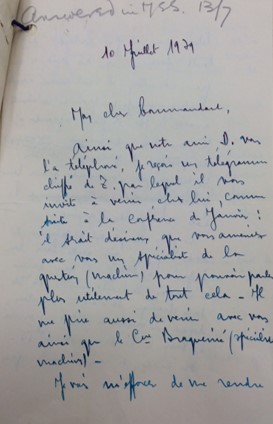 Answered in MSS. 13/7
10 Juillet 1939
Mon cher Commandant,
Ainsi que votre ami D. vous
l'a téléphoné, je reçois un télégramme
chiffré de Z. par lequel il vous
invite à venir chez lui, comme
suite à la Conférence de Janvier :
il serait désireux que vous ameniez
avec vous un spécialiste de la
question (machine) pour pouvoir parler
plus utilement de tout cela - Il
me prie aussi de venir avec vous
ainsi que le Cne Braquenié (spécialiste
machine) -
Je vais m'efforcer de me rendre